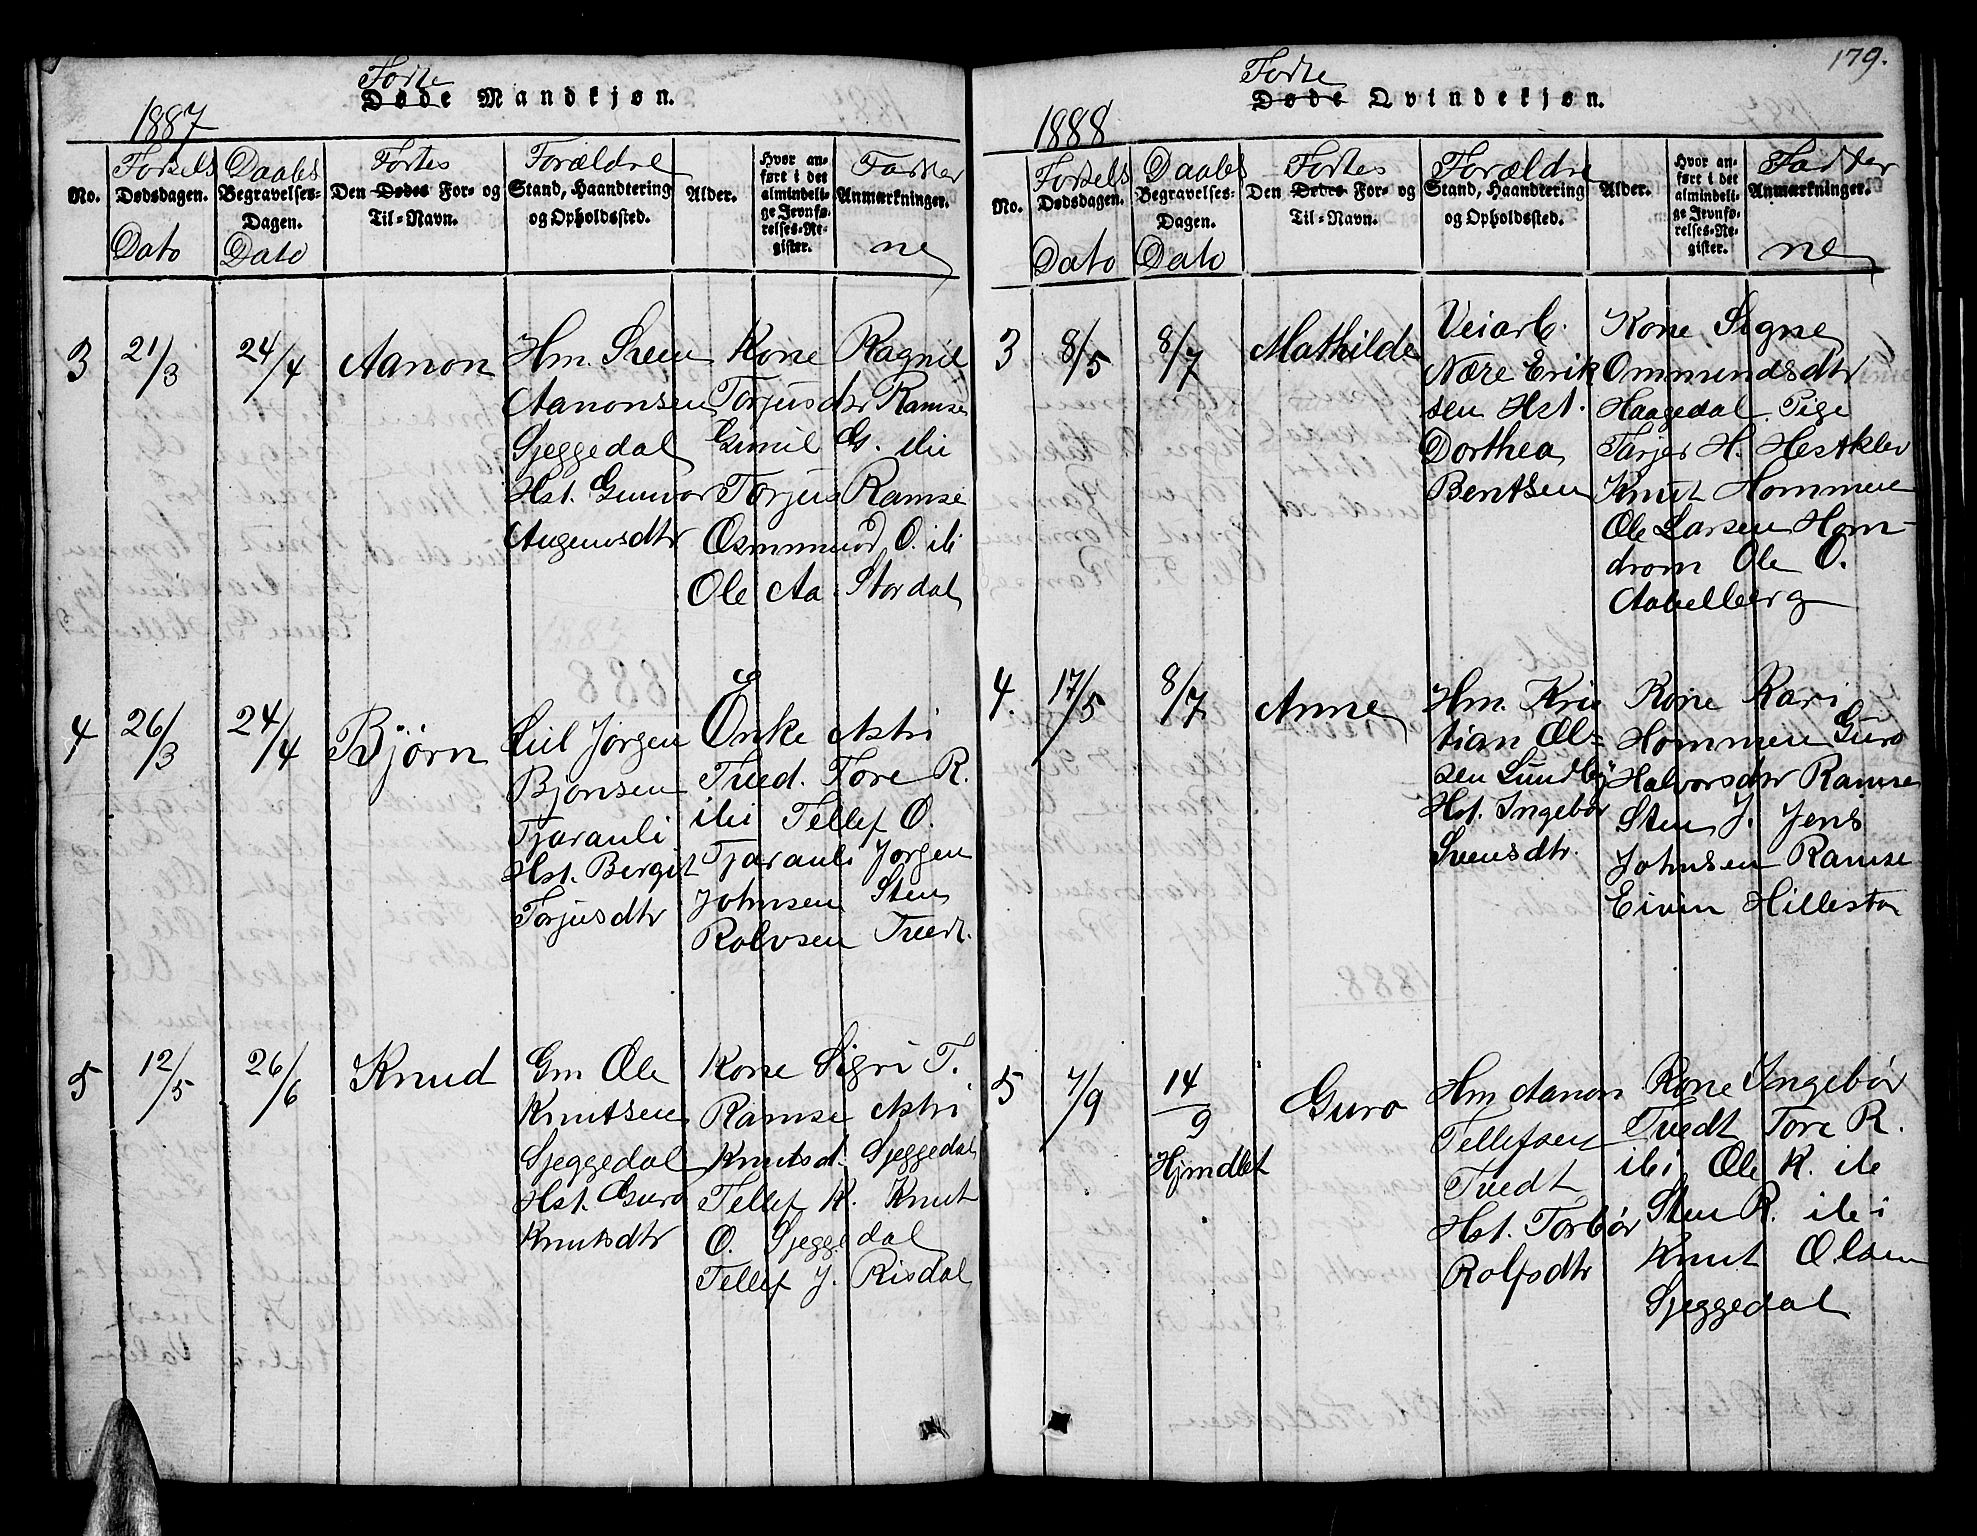 1887
Fødte
Døde Mandkjøn.
No.
Fødsels
Dødsdagen.
Dato
Daabs
Begravelses-
Dagen.
Dato
Fødtes
Den Dødes For- og
Til-Navn.
Forældre
Stand, Haandtering
og Opholdssted.
Alder.
Hvor an-
ført i det
almindeli-
ge Jevnfø-
relses-Re-
gister.
Fadder
Anmærkninger.
ne
3 21/3 24/4 Aanon
Hm. Sven
Aanonsen
Sjeggedal
Hst. Gunvor
Augunsdtr
Kone Ragnil
Torjusdtr Ramse
Gunil G. ibi
Torjus Ramse
Osmmund O. ibi
Ole Aa. Stordal
4 26/3 24/4 Bjørn
Leil Jørgen
Bjønsen
Tjøranli
Hst. Bergit
Torjusdtr
Enke Astri
Tved. Tore R.
ibi Tellef O.
Tjøranli Jørgen
Johnsen Sten
Rolvsen Tvedt.
5 12/5 26/6 Knud
Gm Ole
Knutsen
Sjeggedal
Hst. Guro
Knutsdtr
Kone Sigri T.
Ramse Astri
Knutsd. Sjeggedal
Tellef K. Knut
O. Sjeggedal
Tellef J. Risdal
179.
1888
Fødte
Døde Qvindekjøn.
No.
Fødsels
Dødsdagen.
Dato
Daabs
Begravelses-
Dagen.
Dato
Fødtes
Den Dødes For- og
Til-Navn.
Forældre
Stand, Haandtering
og Opholdssted.
Alder.
Hvor an-
ført i det
almindeli-
ge Jevnfø-
relses-Re-
gister.
Fadder
Anmærkninger.
ne
3 8/5 8/7 Mathilde
Veiarb.
Nære Erik
sen Hst.
Dorthea
Bentsen
Kone Signe
Ommundsdtr
Haagedal Pige
Tarjer H. Hestklev
Knut Hommen
Ole Larsen Hom-
drom Ole O.
Aabelberg
4. 17/5 8/7 Anne
Hm. Kris
tian Ol-
sen Lundby
Hst. Ingebør
Svensdtr.
Kone Kari
Hommen Guro
Halvorsdtr Ramse
Sten J. Jens
Johnsen Ramse
Eivin Hillestø
5 7/9 14/9 Guro
Hjmdbt
Hm Aanon
Tellefsen
Tvedt
Hst. Torbør
Rolfsdtr
Kone Ingebør
Tvedt Tore R.
ibi Ole K. ib
Sten R. ibi
Knut Olsen
Sjeggedal